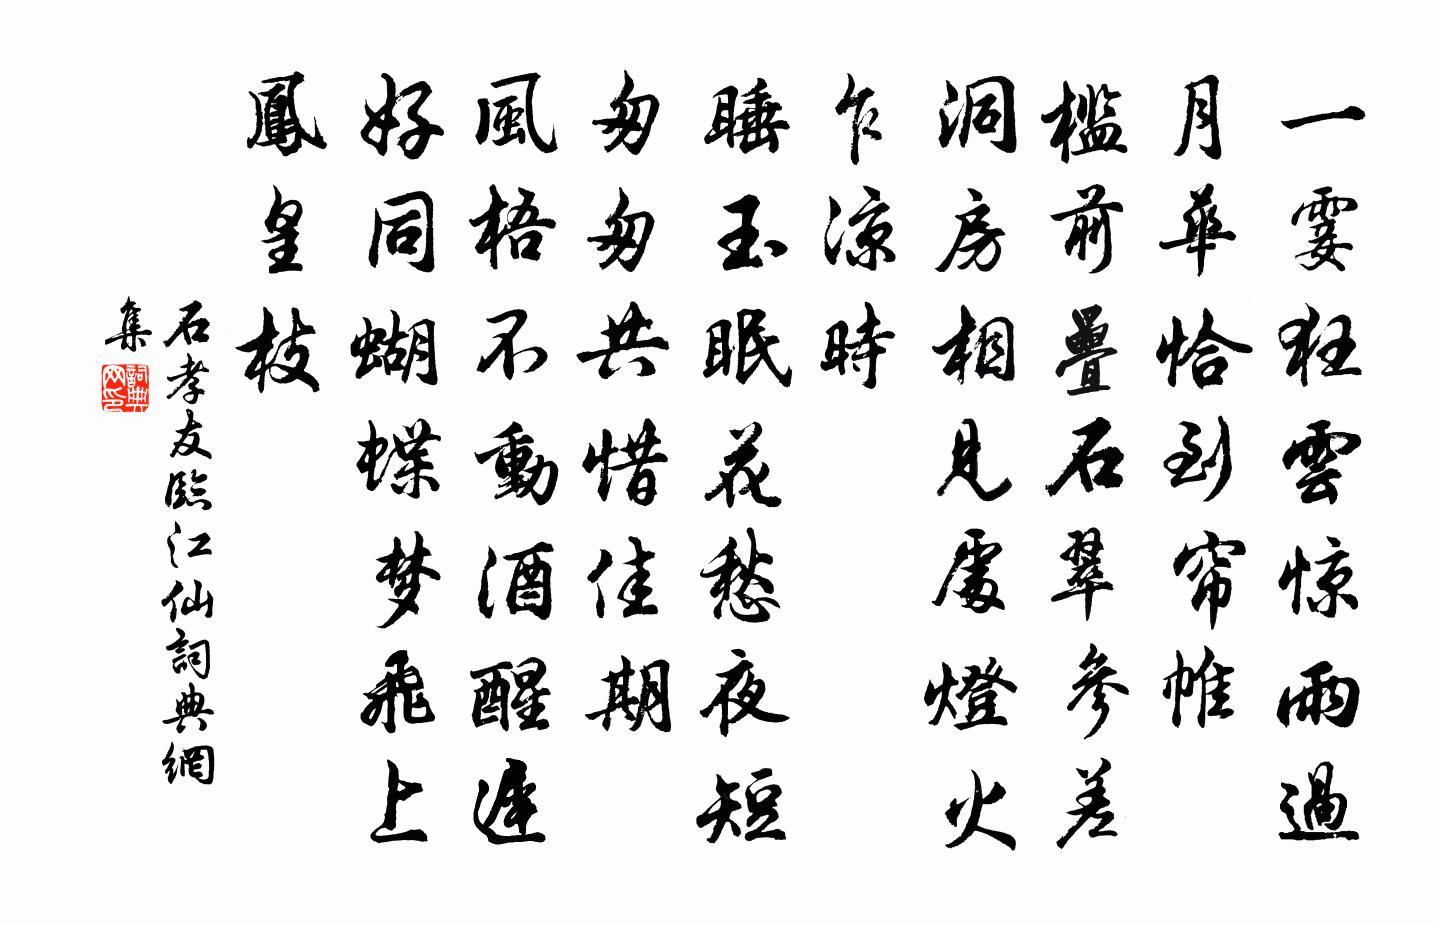 一霎狂雲惊雨過
月華恰到帘帷
檻前疊石翠參差
洞房相見處燈火
乍凉時
睡玉眠花愁夜短
匆匆共惜佳期
風梧不動酒醒遲
好同蝴蝶梦飛上
鳳皇枝
石孝友臨江仙詞典網
集
詞典
网印